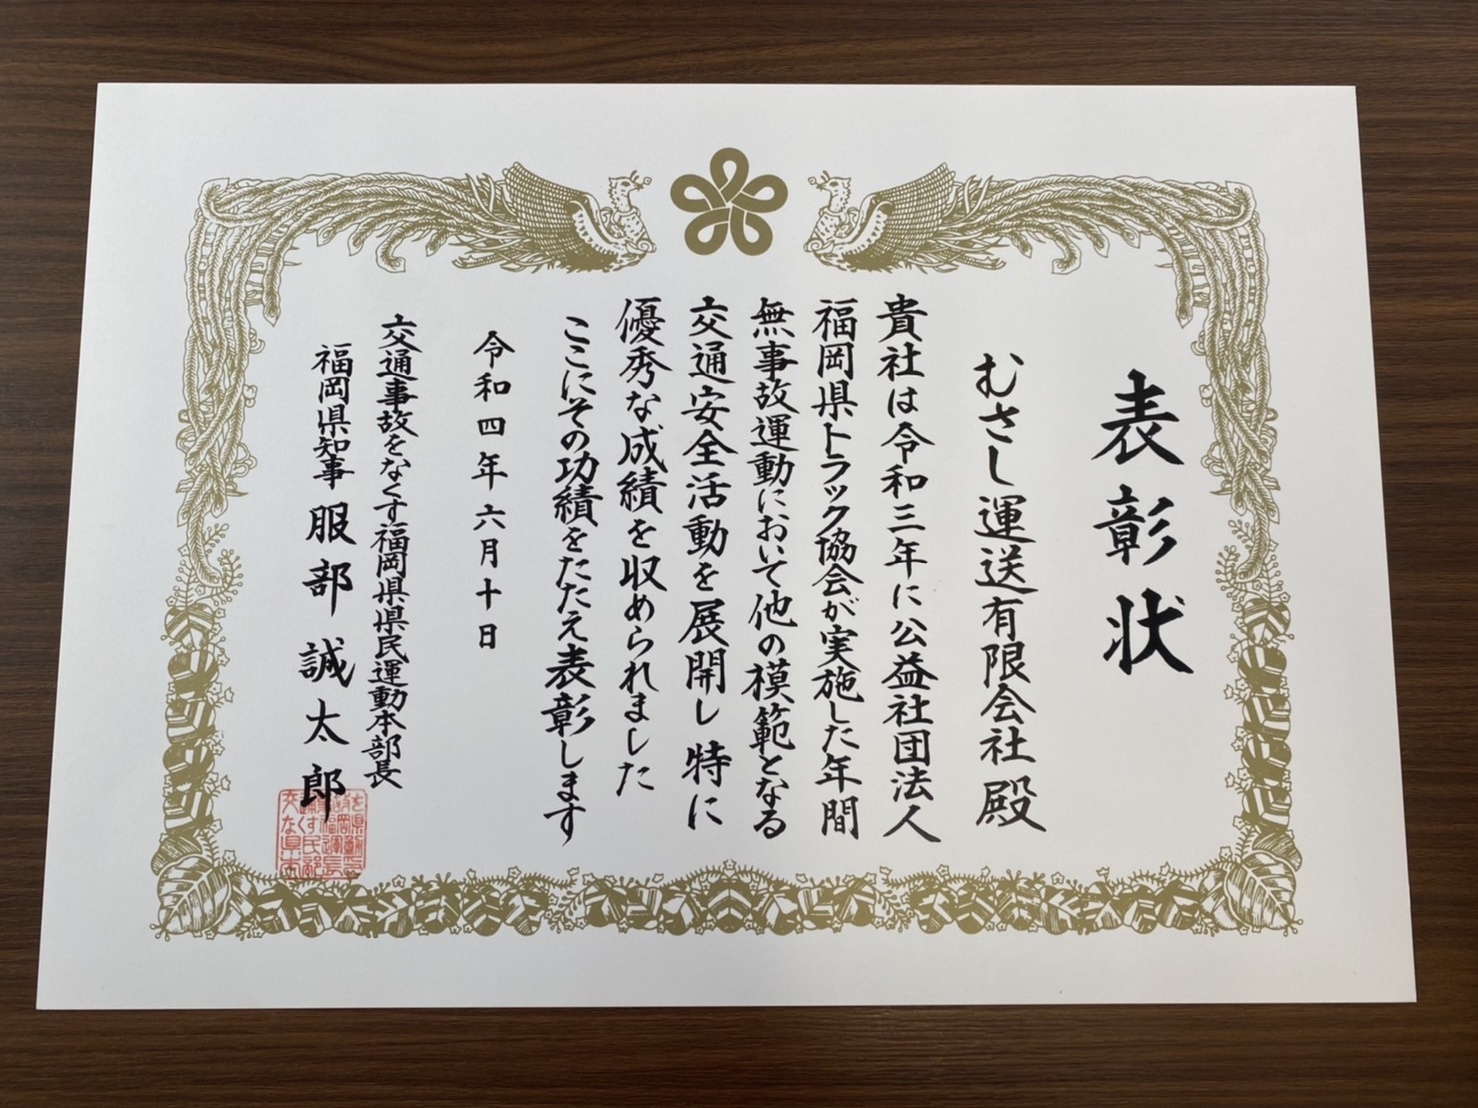 表彰状
むさし運送有限会社 殿
貴社は令和三年に公益社団法人
福岡県トラック協会が実施した年間
無事故運動において他の模範となる
交通安全活動を展開し特に
優秀な成績を収められました
ここにその功績をたたえ表彰します
令和四年六月十日
交通事故をなくす福岡県県民運動本部長
福岡県知事 服部誠太郎